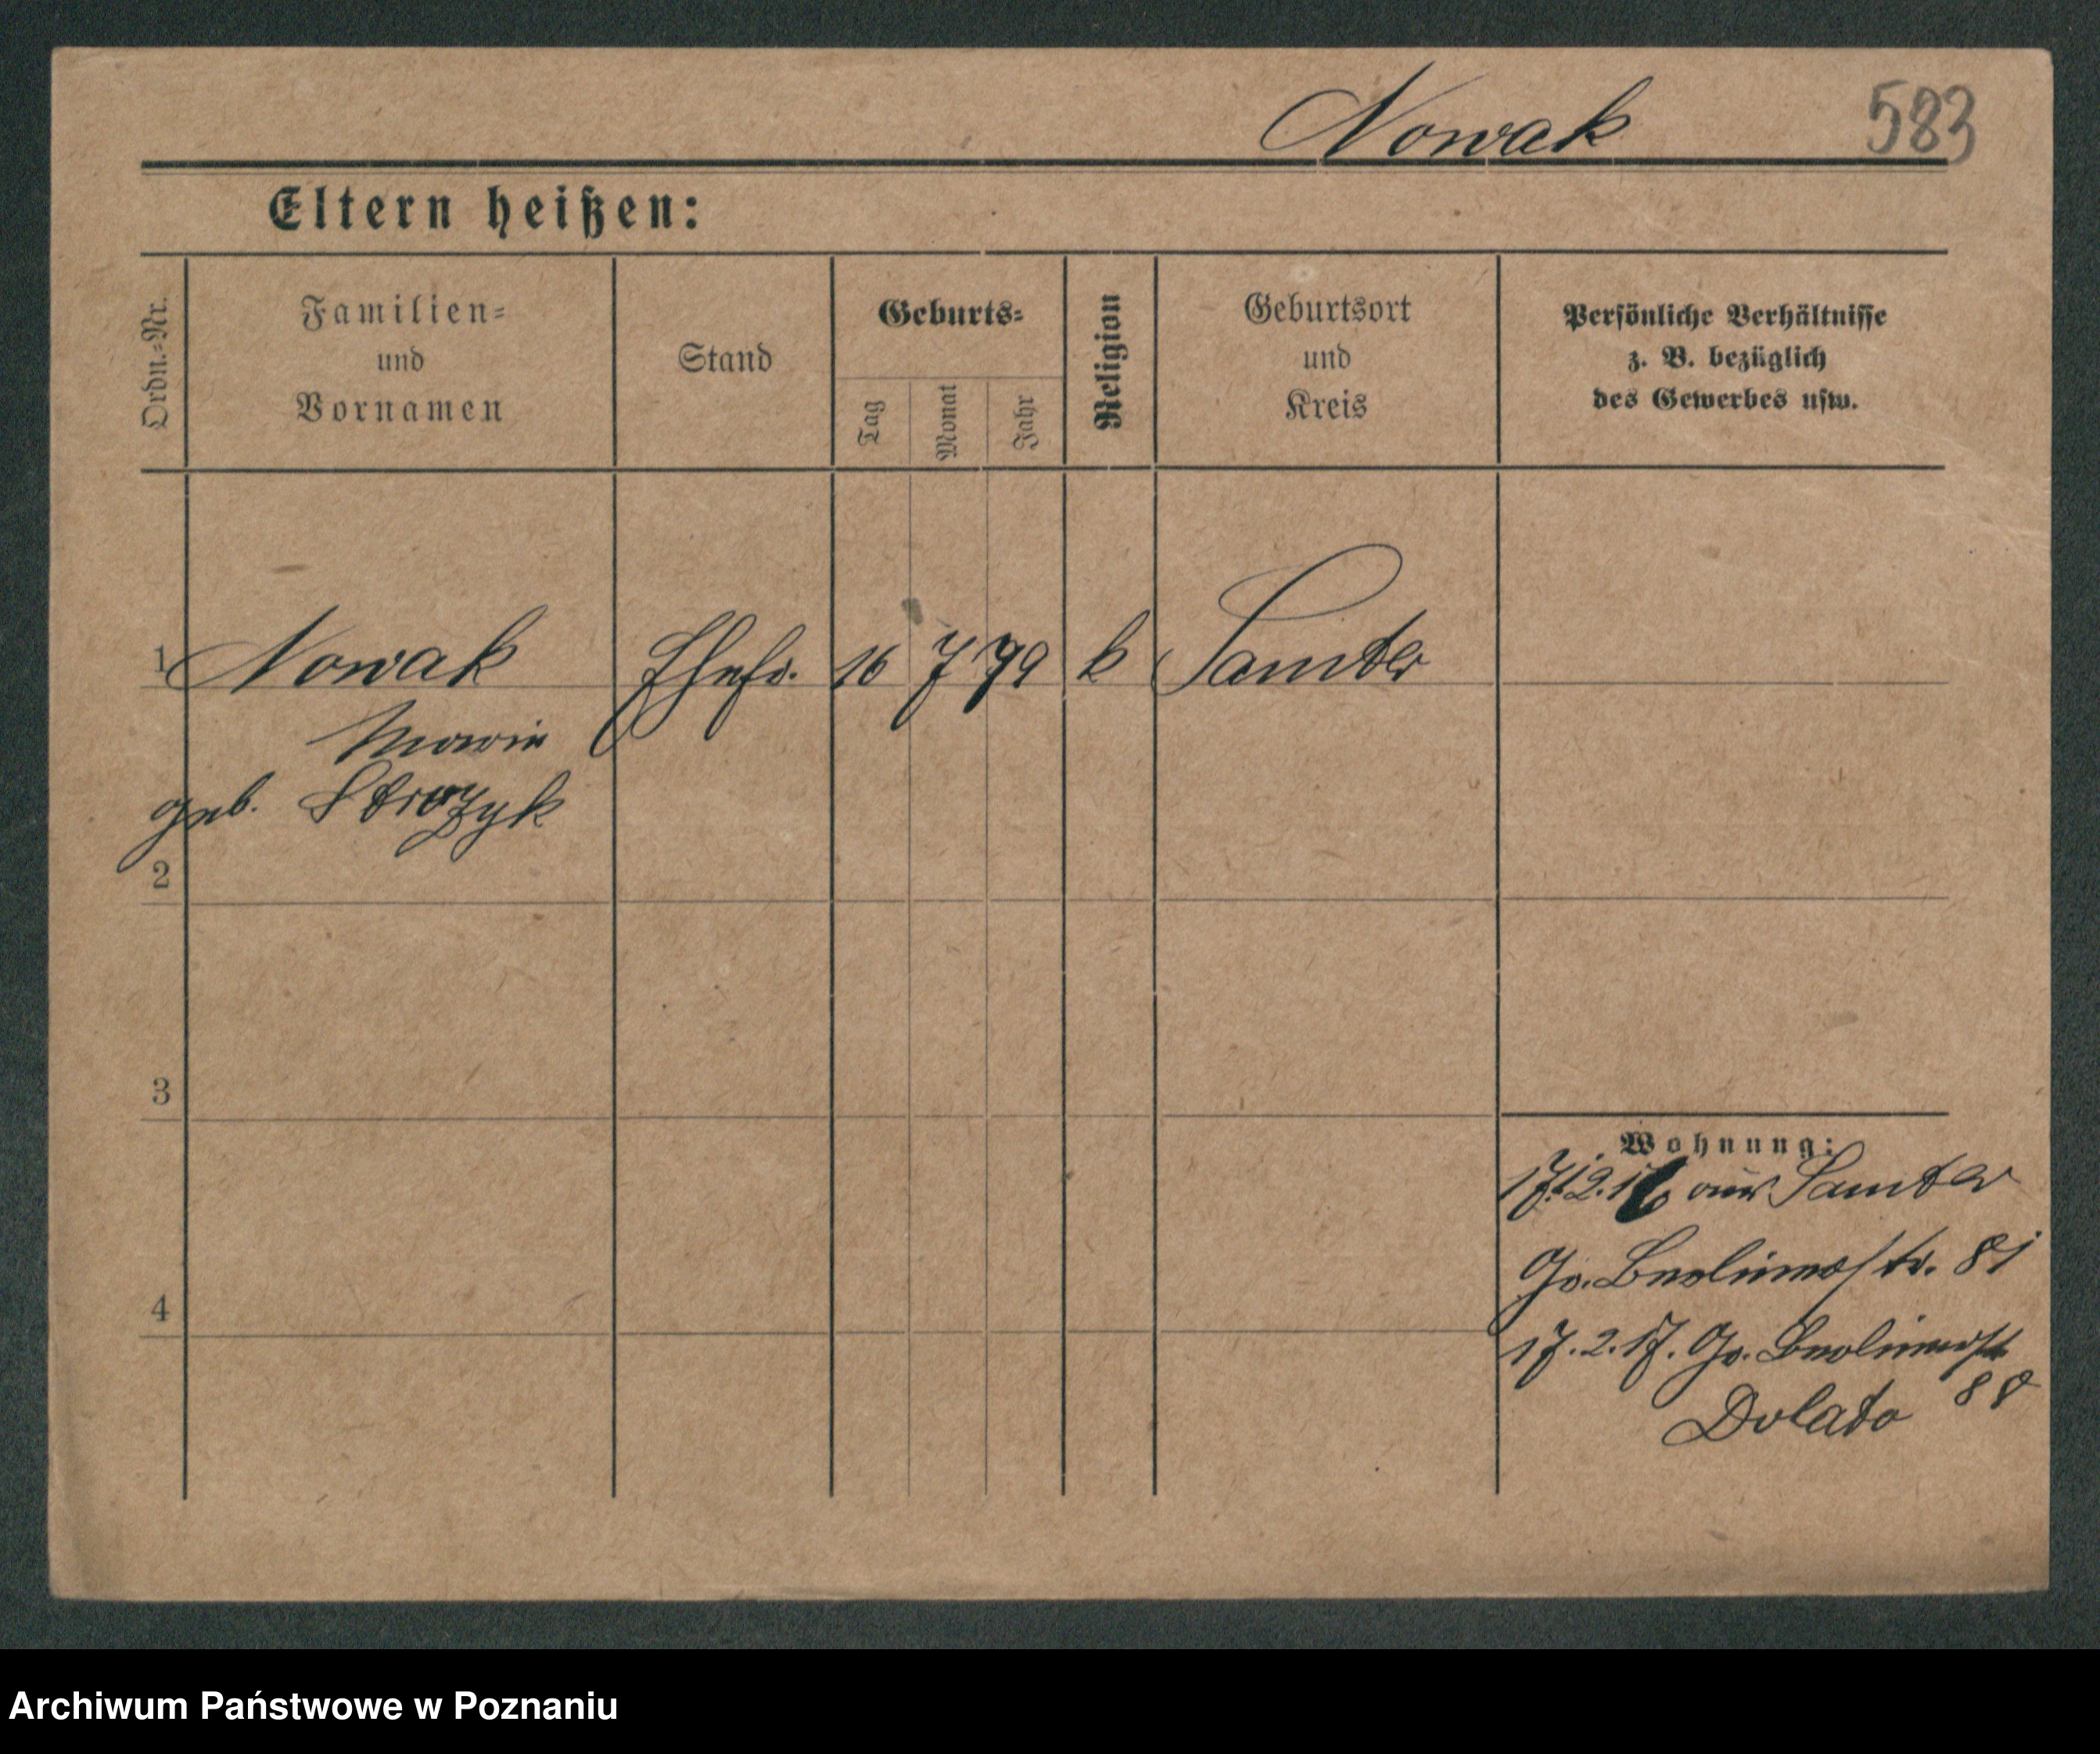 Nowak 583
Eltern heißen:
Ordn.-Nr.
Familien-
und
Vornamen
Stand
Geburts-
Tag
Monat
Jahr
Religion
Geburtsort
und
Kreis
Persönliche Verhältnisse
z. B. bezüglich
des Gewerbes usw.
1 Nowak Ehefr. 16 7 79 k Samter
Marie
geb. Strozyk
2
3
4
Wohnung:
17.12.16 aus Samter
Gr. Berlinerstr. 81
17.2.17. Gr. Berlinerstr
88
Dolato
Archiwum Państwowe w Poznaniu